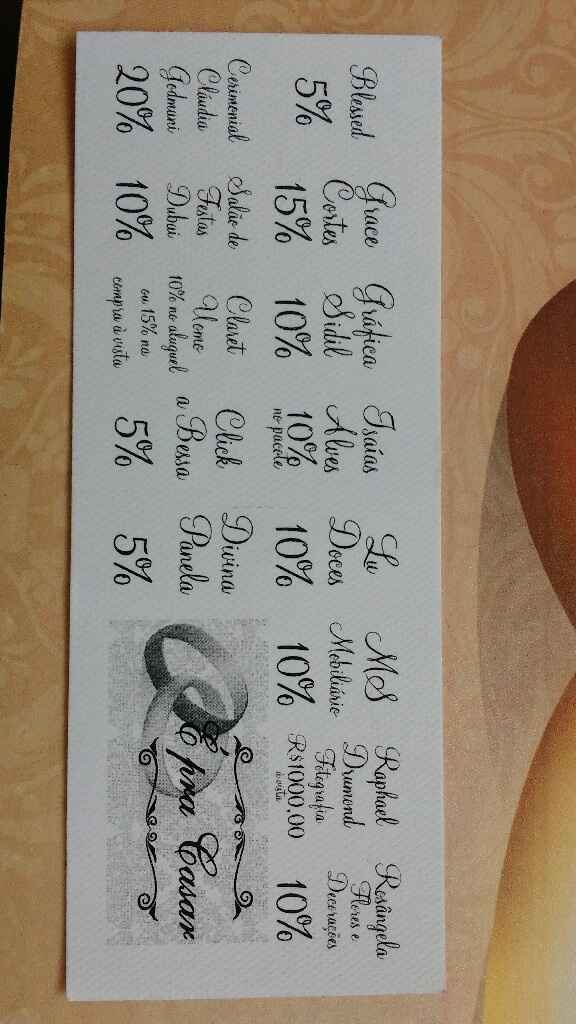 Blessed
5%
Grace
Cortes
15%
Gráfica
Sidil
10%
Isaías
Alves
10%
no pacote
Lu
Doces
10%
MS
Mobiliário
10%
Raphael
Drumond
Fotografia
R$1000,00
à vista
Rosângela
Flores e
Decorações
10%
Cerimonial
Cláudia
Godmani
20%
Salão de
Festas
Dubai
10%
Claret
Uomo
10% no aluguel
ou 15% na
compra à vista
Click
a Bessa
5%
Divina
Panela
5%
É pra Casar